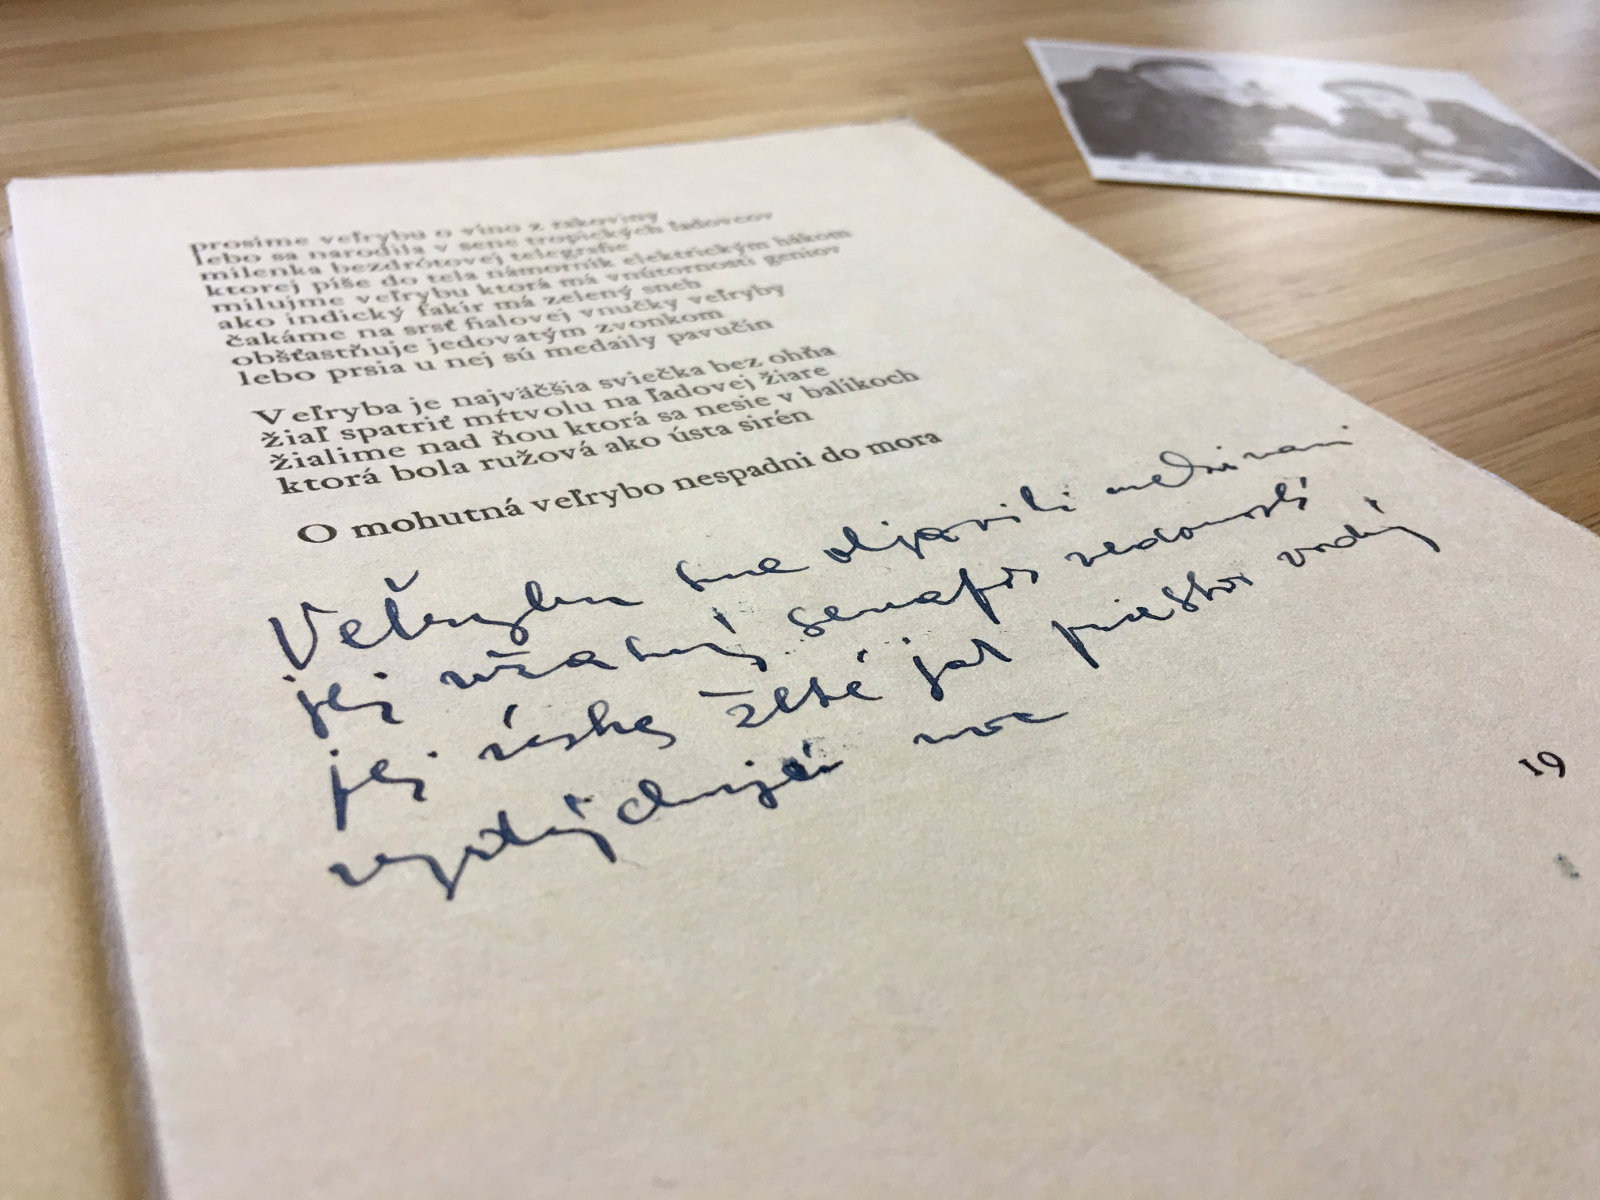 prosíme veľrybu o víno z rakoviny
lebo sa narodila v sene tropických ľadovcov
milenka bezdrôtovej telegrafie
ktorej píše do tela námorník elektrickým hákom
milujme veľrybu ktorá má vnútornosti geniov
ako indický fakír má zelený sneh
čakáme na srsť fialovej vnučky veľryby
obšťastňuje jedovatým zvonkom
lebo prsia u nej sú medaily pavučín
Veľryba je najväčšia sviečka bez ohňa
žiaľ spatriť mŕtvolu na ľadovej žiare
žialime nad ňou ktorá sa nesie v balíkoch
ktorá bola ružová ako ústa sirén
O mohutná veľrybo nespadni do mora
Veľrybu sme objavili medzi nami
jej vzácny semafor vedomostí
jej žlté jak piestor vodný
noc
19